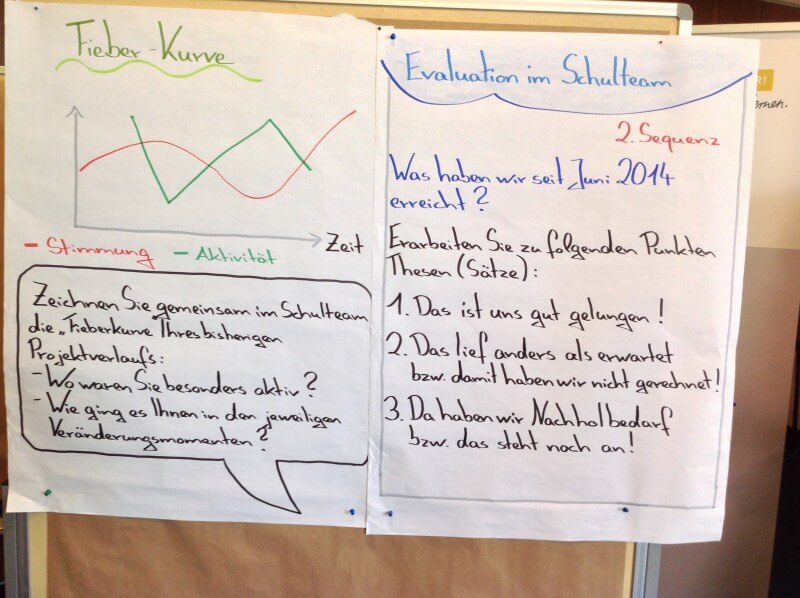 Fieber-Kurve
Zeit
– Stimmung – Aktivität
Zeichnen Sie gemeinsam im Schulteam
die „Fieberkurve Ihres bisherigen
Projektverlaufs:
- Wo waren Sie besonders aktiv?
- Wie ging es Ihnen in den jeweiligen
Veränderungsmomenten?
Evaluation im Schulteam
2. Sequenz
Was haben wir seit Juni 2014
erreicht?
Erarbeiten Sie zu folgenden Punkten
Thesen (Sätze):
1. Das ist uns gut gelungen!
2. Das lief anders als erwartet
bzw. damit haben wir nicht gerechnet!
3. Da haben wir Nachholbedarf
bzw. das steht noch an!